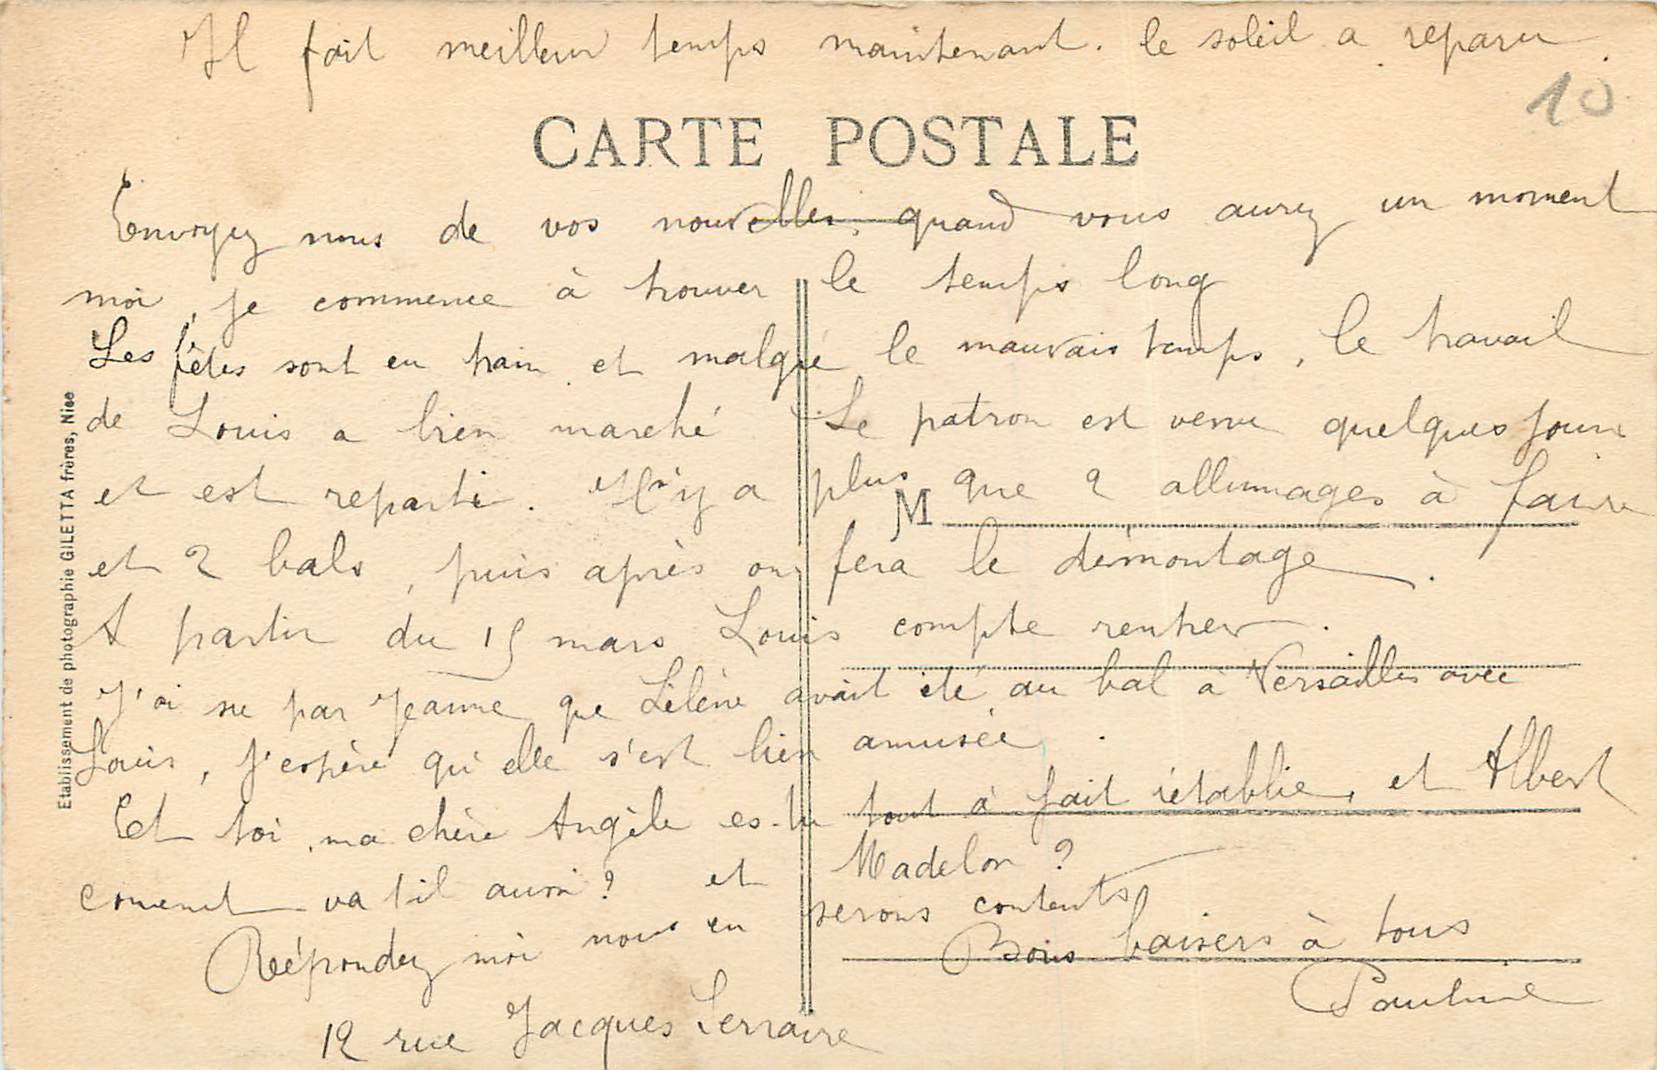 Il fait meilleur temps maintenant. le soleil a reparu.
10
CARTE POSTALE
Envoyez nous de vos nouvelles, quand vous aurez un moment
moi, je commence à trouver le temps long
Les fêtes sont en train et malgré le mauvais temps, le travail
de Louis a bien marché Le patron est venu quelques jours
et est reparti. Il n'y a plus que 2 allumages à faire
M
et 2 bals, puis après on fera le démontage.
A partir du 15 mars Louis compte rentrer.
J'ai su par Jeanne que Hélène avait été au bal à Versailles avec
Louis, j'espère qu'elle s'est bien amusée.
Et toi, ma chère Angèle es-tu tout à fait rétablie, et Albert
coment va t'il aussi? et Madelon ?
Répondez moi nous en serons contents
Bons baisers à tous
Pauline
12 rue Jacques
Etablissement de photographie GILETTA frères, Nice